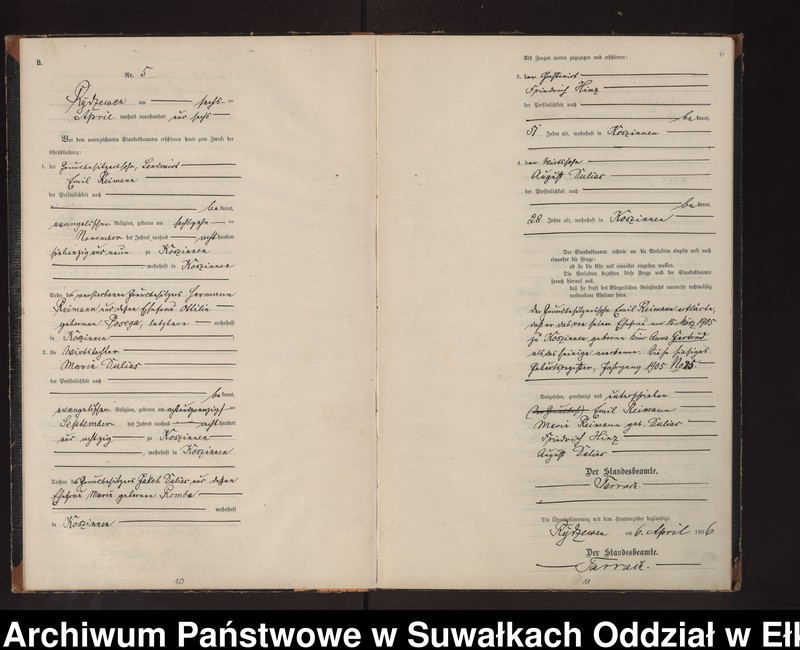 B.
Nr. 5
Rydzewen am sechs
April tausend neunhundert und sechs
Vor dem unterzeichneten Standesbeamten erschienen heute zum Zwecke der
Eheschließung:
1. der Grundbesitzersohn, Landwirt
Emil Reimann
der Persönlichkeit nach
bekannt,
evangelischer Religion, geboren am sechszehn
November des Jahres tausend acht hundert
siebenzig und neun zu Koszinnen
, wohnhaft in Koszinnen
Sohn des verstorbenen Grundbesitzers Hermann
Reimann und dessen Ehefrau Ottilie
geborenen Posega, letztere wohnhaft
in Koszinnen
2. die Wirtstochter
Marie Dulias
der Persönlichkeit nach
bekannt,
evangelischer Religion, geboren am achtundzwanzig
September des Jahres tausend acht hundert
und achtzig zu Koszinnen
, wohnhaft in Koszinnen
Tochter des Grundbesitzers Jakob Dulias und dessen
Ehefrau Marie geborene Romba
wohnhaft
in Koszinnen
10
Als Zeugen waren zugezogen und erschienen:
3. der Gastwirt
Friedrich Hinz
der Persönlichkeit nach
bekannt,
51 Jahre alt, wohnhaft in Koszinnen
4. der Wirtssohn
August Dulias
der Persönlichkeit nach
bekannt,
28 Jahre alt, wohnhaft in Koszinnen
Der Standesbeamte richtete an die Verlobten einzeln und nach
einander die Frage:
ob sie die Ehe mit einander eingehen wollen.
Die Verlobten bejahten diese Frage und der Standesbeamte
sprach hierauf aus,
daß sie kraft des Bürgerlichen Gesetzbuchs nunmehr rechtmäßig
verbundene Eheleute seien.
Der Grundbesitzersohn Emil Reimann erklärte,
daß er das von seiner Ehefrau am 15. März 1905
zu Koszinnen geborene Kind Anna Gertrud
als das seinige anerkenne. Siehe hiesiges
Geburtsregister, Jahrgang 1905 No 25.
Vorgelesen, genehmigt und unterschrieben
Emil Reimann
Marie Reimann geb. Dulias
Friedrich Hinz
August Dulias
Der Standesbeamte.
Tarrach.
Die Übereinstimmung mit dem Hauptregister beglaubigt.
Rydzewen am 6. April 1906
Der Standesbeamte.
Tarrach.
11
Archiwum Państwowe w Suwałkach Oddział w Ełk